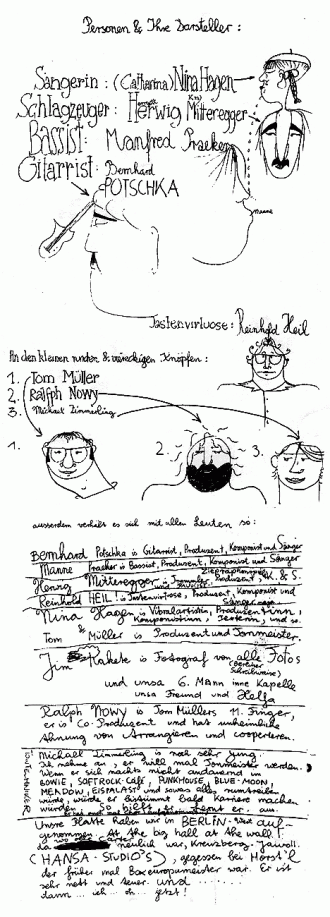 Personen & Ihre Darsteller:
Sängerin: (Catharina) Nina Hagen
Schlagzeuger: Herwig Mitteregger
Bassist: Manfred Praeker
Gitarrist: Bernhard
POTSCHKA
Manne
Tastenvirtuose: Reinhold Heil
An den kleinen runden & 4eckigen Knöpfen:
1. Tom Müller
2. Ralph Nowy
3. Michael Zimmerling
1.
2.
3.
ausserdem verhält es sich mit allen Leuten so:
Bernhard Potschka is Gitarrist, Produzent, Komponist und Sänger
Manne Praeker is Bassist, Produzent, Komponist und Sänger
Herwig Mitteregger is Produzent K. & S.
Reinhold HEIL is Tastenvirtuose, Produzent, Komponist und
Sänger
Nina Hagen is Vokalartistin, Produzentinn,
Komponistinn, Texterin, und so.
Tom Müller is Produzent und Tonmeister.
Jim Rakete is Fotograf von alle Fotos
und unsa 6. Mann inne Kapelle
unsa Freund und Helfa
Ralph Nowy is Tom Müllers 11. Finger,
er is Co-Produzent und hat unheimliche
Ahnung von Arrangieren und cooperieren.
Michael Zimmerling is noch sehr jung.
Ich nehme an, er will mal Tonmeister werden.
Wenn er sich nachts nicht andauernd in
BOWIE, SOFTROCK-CAFÉ, PUNKHOUSE, BLUE-MOON,
MENDOW, EISPALAST und sowas alles rumtreiben
würde, würde er bestimmt bald Karriere machen.
würden. So bildet er aus.
Unsre Platte haben wir in BERLIN-West auf-
genommen. At the big hall at the wall!
da neulich war, Kreuzberg. Jawoll.
(HANSA-STUDIO'S), gegessen bei Horst'l
der früher mal Boxeuropameister war. Er ist
sehr nett und teuer. und
dann ... ich ... jetzt!